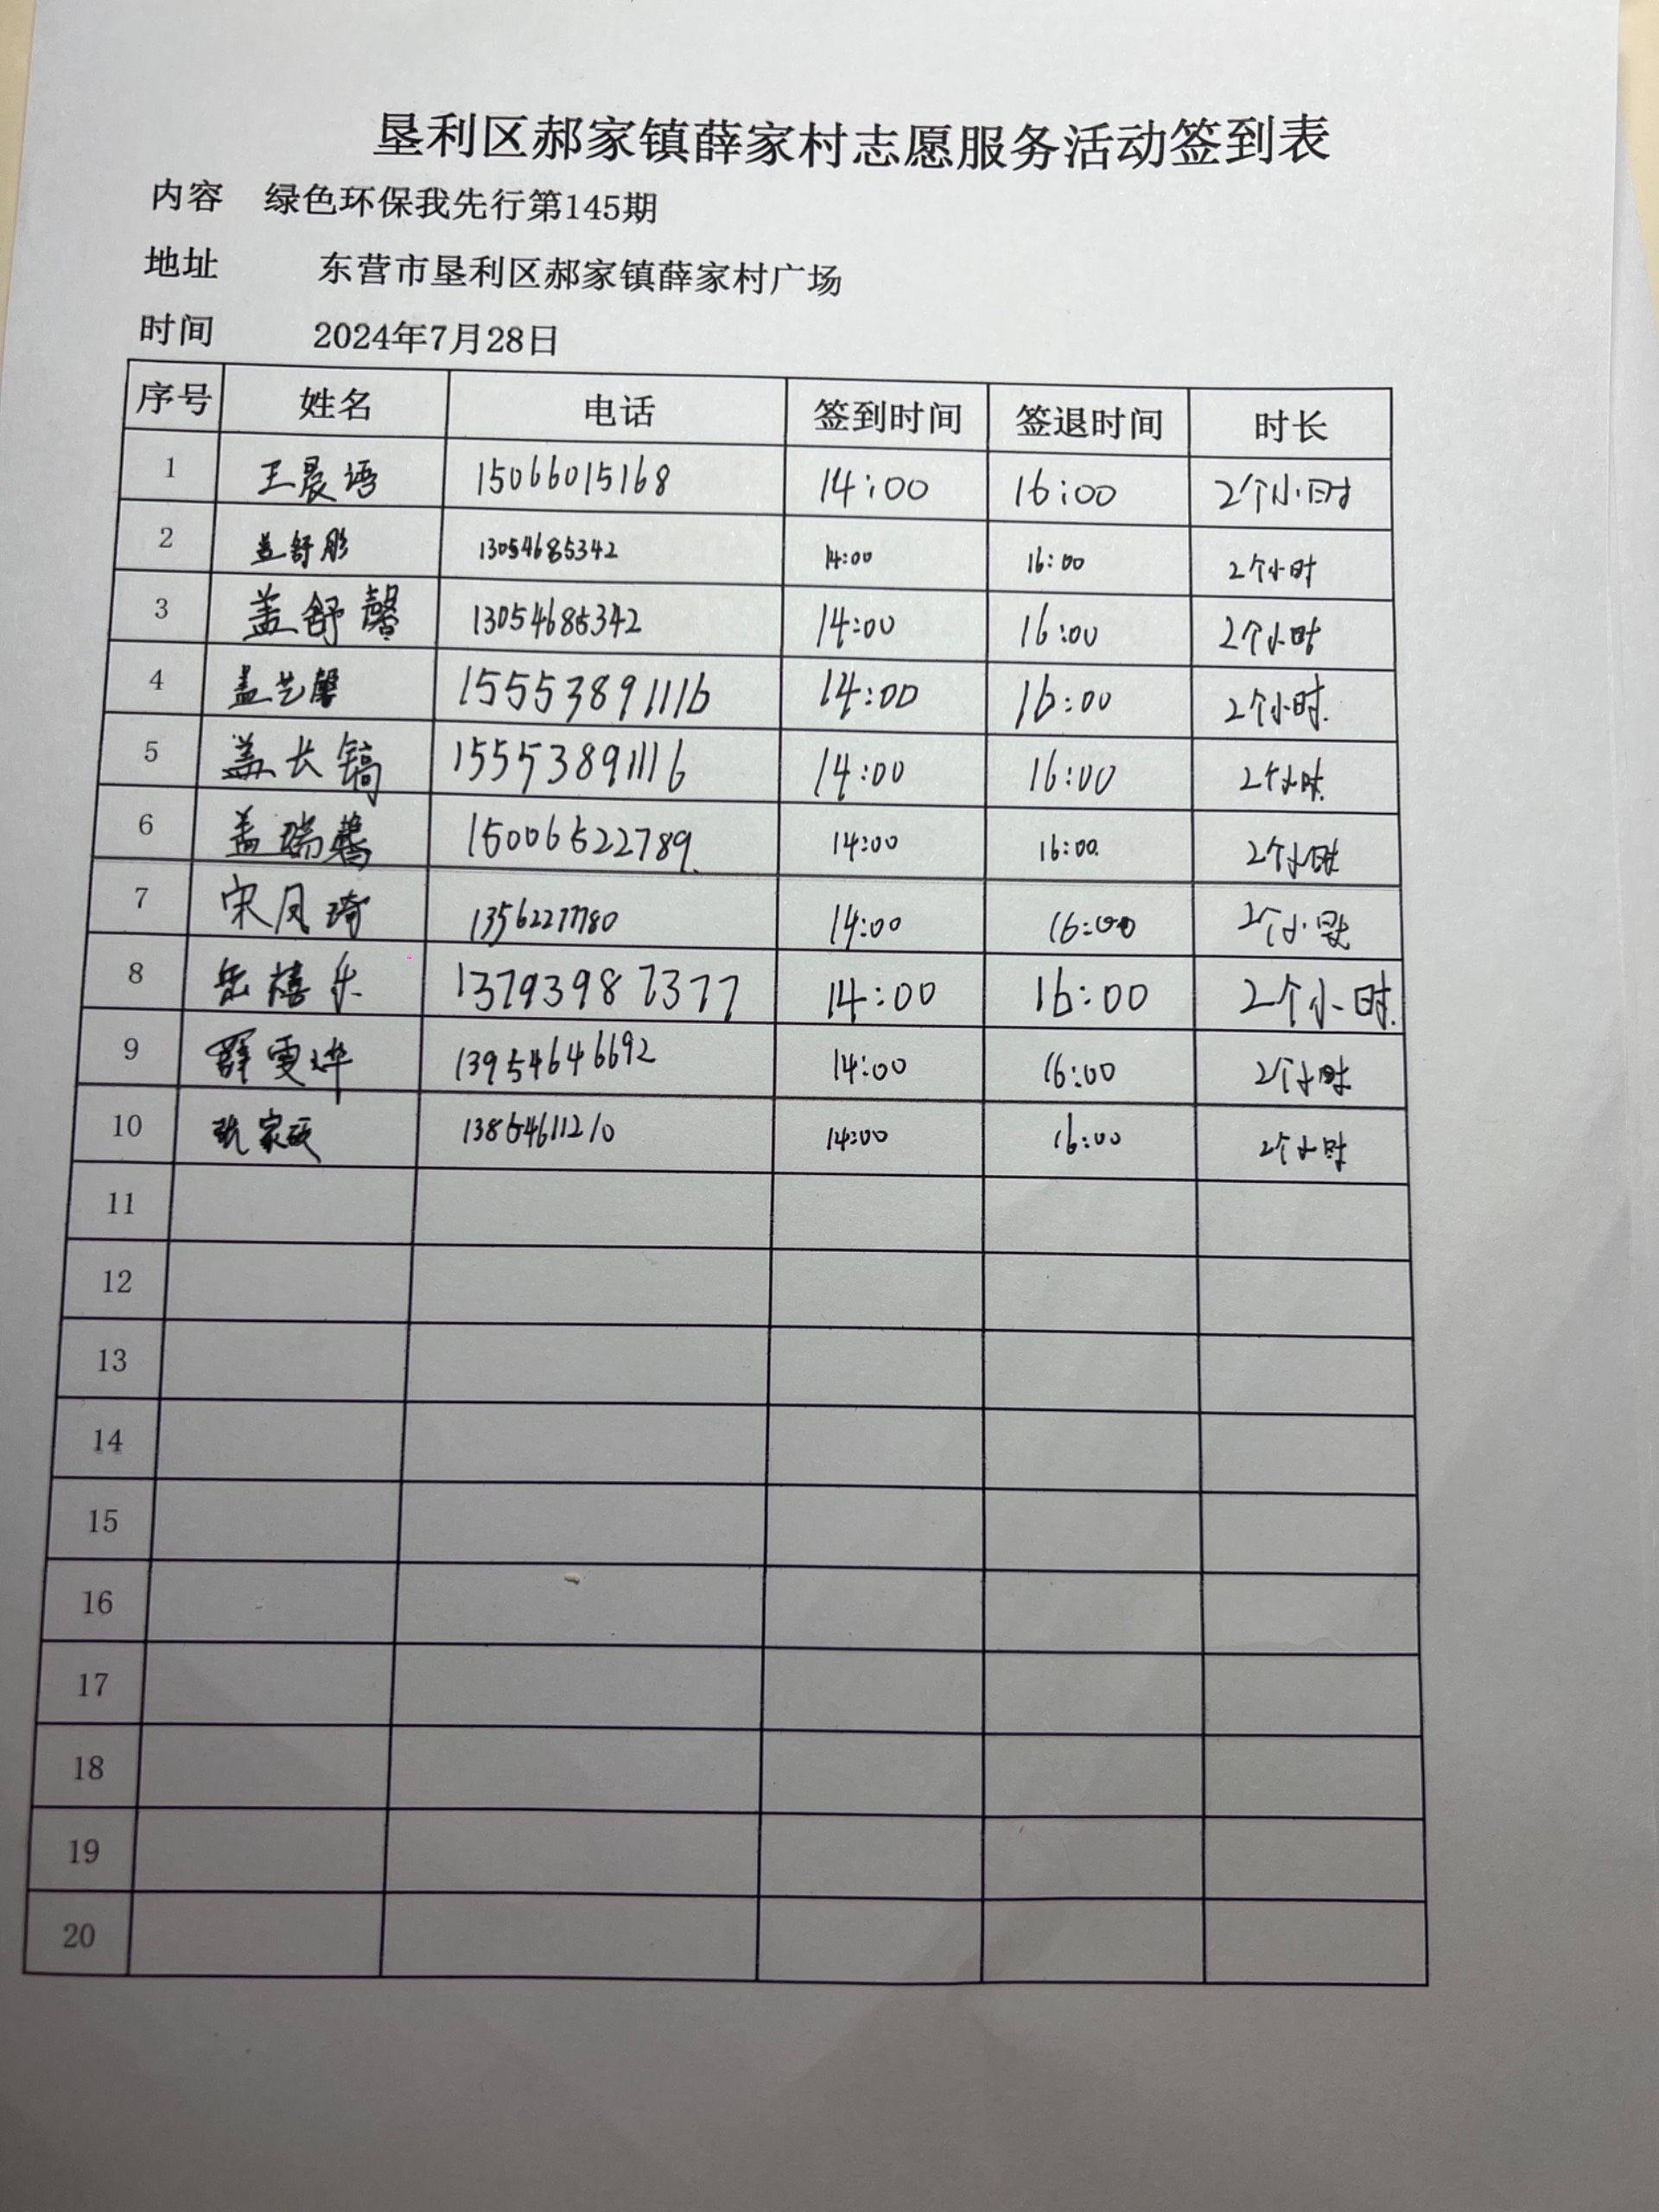 垦利区郝家镇薛家村志愿服务活动签到表
内容 绿色环保我先行第145期
地址 东营市垦利区郝家镇薛家村广场
时间 2024年7月28日
序号 姓名 电话 签到时间 签退时间 时长
1 王晨语 15066015168 14:00 16:00 2个小时
2 盖舒彤 13054685342 14:00 16:00 2个小时
3 盖舒馨 13054685342 14:00 16:00 2个小时
4 盖艺馨 15553891116 14:00 16:00 2个小时.
5 盖长镐 15553891116 14:00 16:00 2个小时.
6 盖瑞馨 15006522789. 14:00 16:00. 2个小时
7 宋月琦 13562277780 14:00 16:00 2个小时
8 岳禧乐 13793987377 14:00 16:00 2个小时.
9 薛雯烨 13954646692 14:00 16:00 2个小时
10 张家硕 13854611210 14:00 16:00 2个小时
11
12
13
14
15
16
17
18
19
20